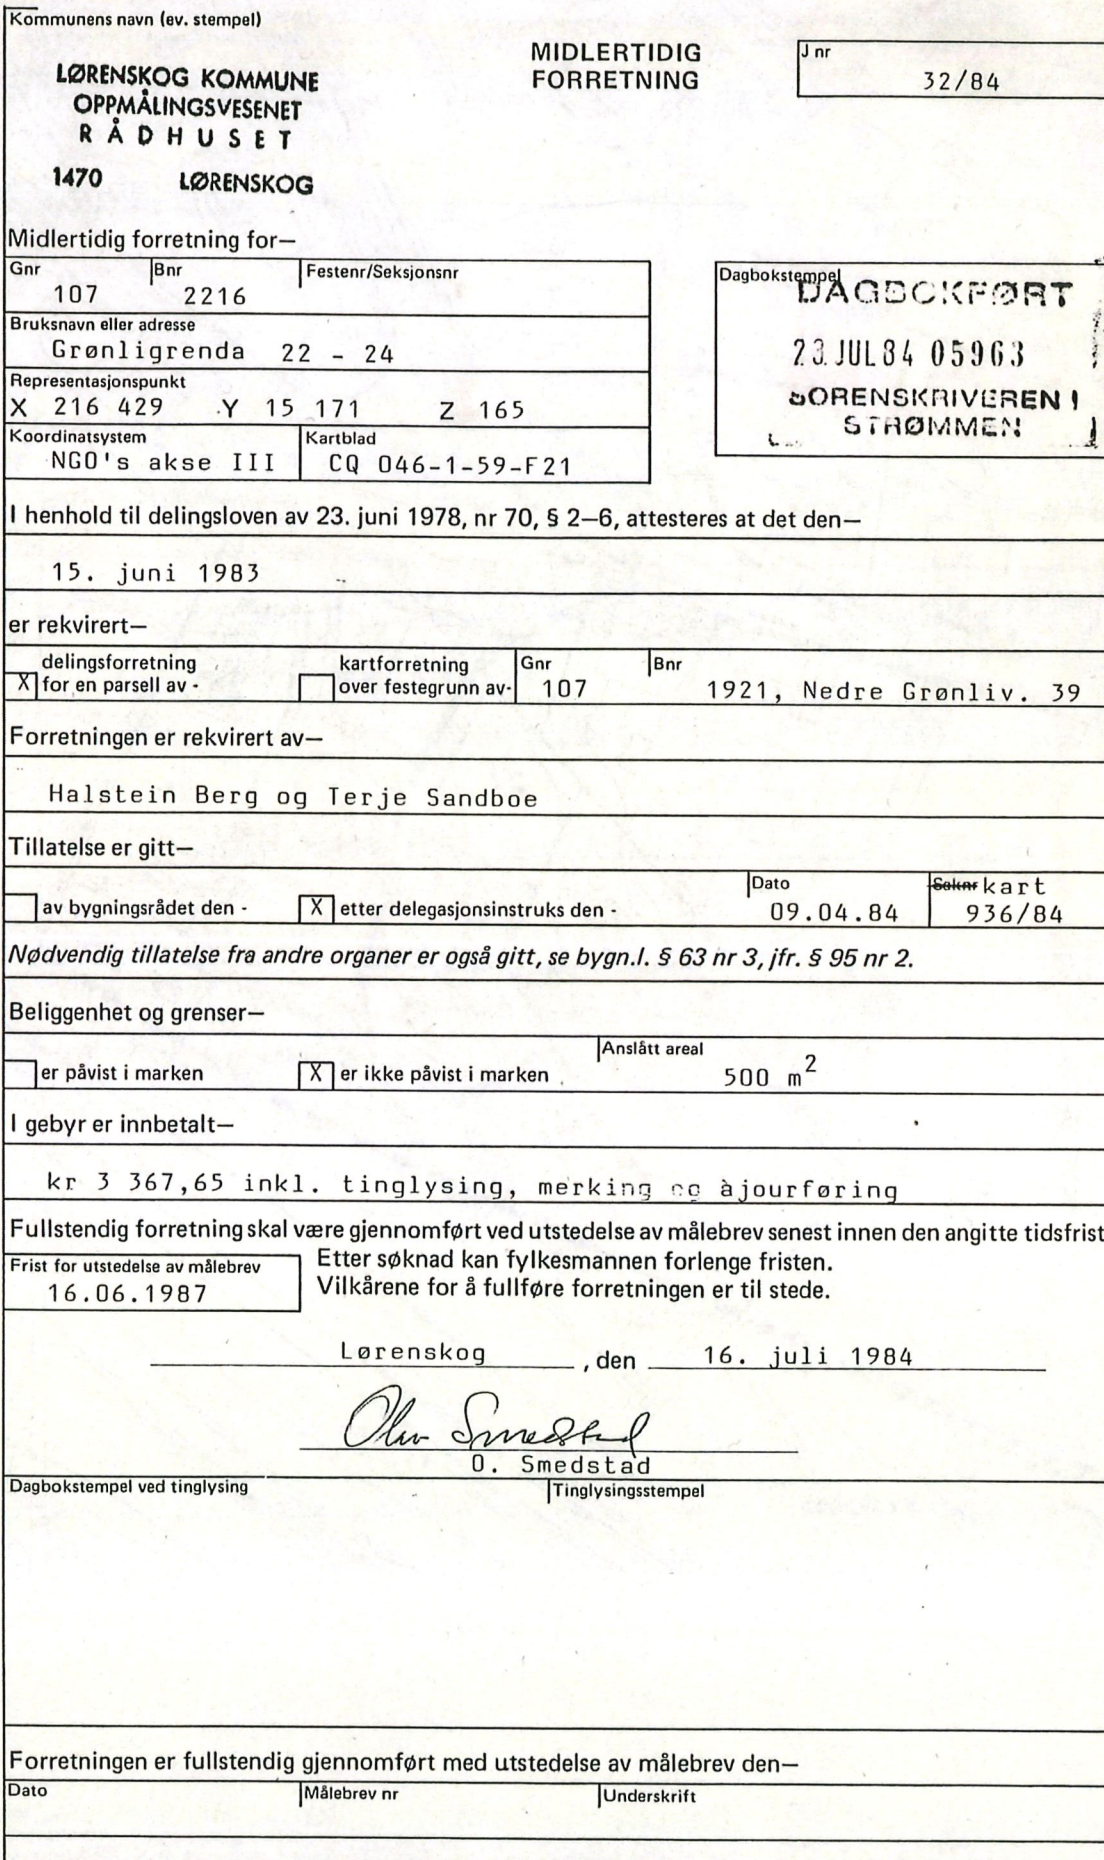 Kommunens navn (ev. stempel)
LØRENSKOG KOMMUNE
OPPMÅLINGSVESENET
RÅDHUSET
1470 LØRENSKOG
MIDLERTIDIG
FORRETNING
J nr
32/84
Midlertidig forretning for—
Gnr Bnr Festenr/Seksjonsnr
107 2216
Bruksnavn eller adresse
Grønligrenda 22 - 24
Representasjonspunkt
X 216 429 Y 15 171 Z 165
Koordinatsystem Kartblad
NGO's akse III CQ 046-1-59-F21
Dagbokstempel
DAGBOKFØRT
23.JUL84 05963
SORENSKRIVEREN I
STRØMMEN
I henhold til delingsloven av 23. juni 1978, nr 70, § 2—6, attesteres at det den—
15. juni 1983
er rekvirert—
delingsforretning kartforretning Gnr Bnr
X for en parsell av - over festegrunn av- 107 1921, Nedre Grønliv. 39
Forretningen er rekvirert av—
Halstein Berg og Terje Sandboe
Tillatelse er gitt—
Dato Saknr kart
av bygningsrådet den - X etter delegasjonsinstruks den - 09.04.84 936/84
Nødvendig tillatelse fra andre organer er også gitt, se bygn.l. § 63 nr 3, jfr. § 95 nr 2.
Beliggenhet og grenser—
Anslått areal
er påvist i marken X er ikke påvist i marken 500 m2
I gebyr er innbetalt—
kr 3 367,65 inkl. tinglysing, merking og àjourføring
Fullstendig forretning skal være gjennomført ved utstedelse av målebrev senest innen den angitte tidsfrist
Frist for utstedelse av målebrev
16.06.1987
Etter søknad kan fylkesmannen forlenge fristen.
Vilkårene for å fullføre forretningen er til stede.
Lørenskog , den 16. juli 1984
Olav Smedstad
O. Smedstad
Dagbokstempel ved tinglysing Tinglysingsstempel
Forretningen er fullstendig gjennomført med utstedelse av målebrev den—
Dato Målebrev nr Underskrift